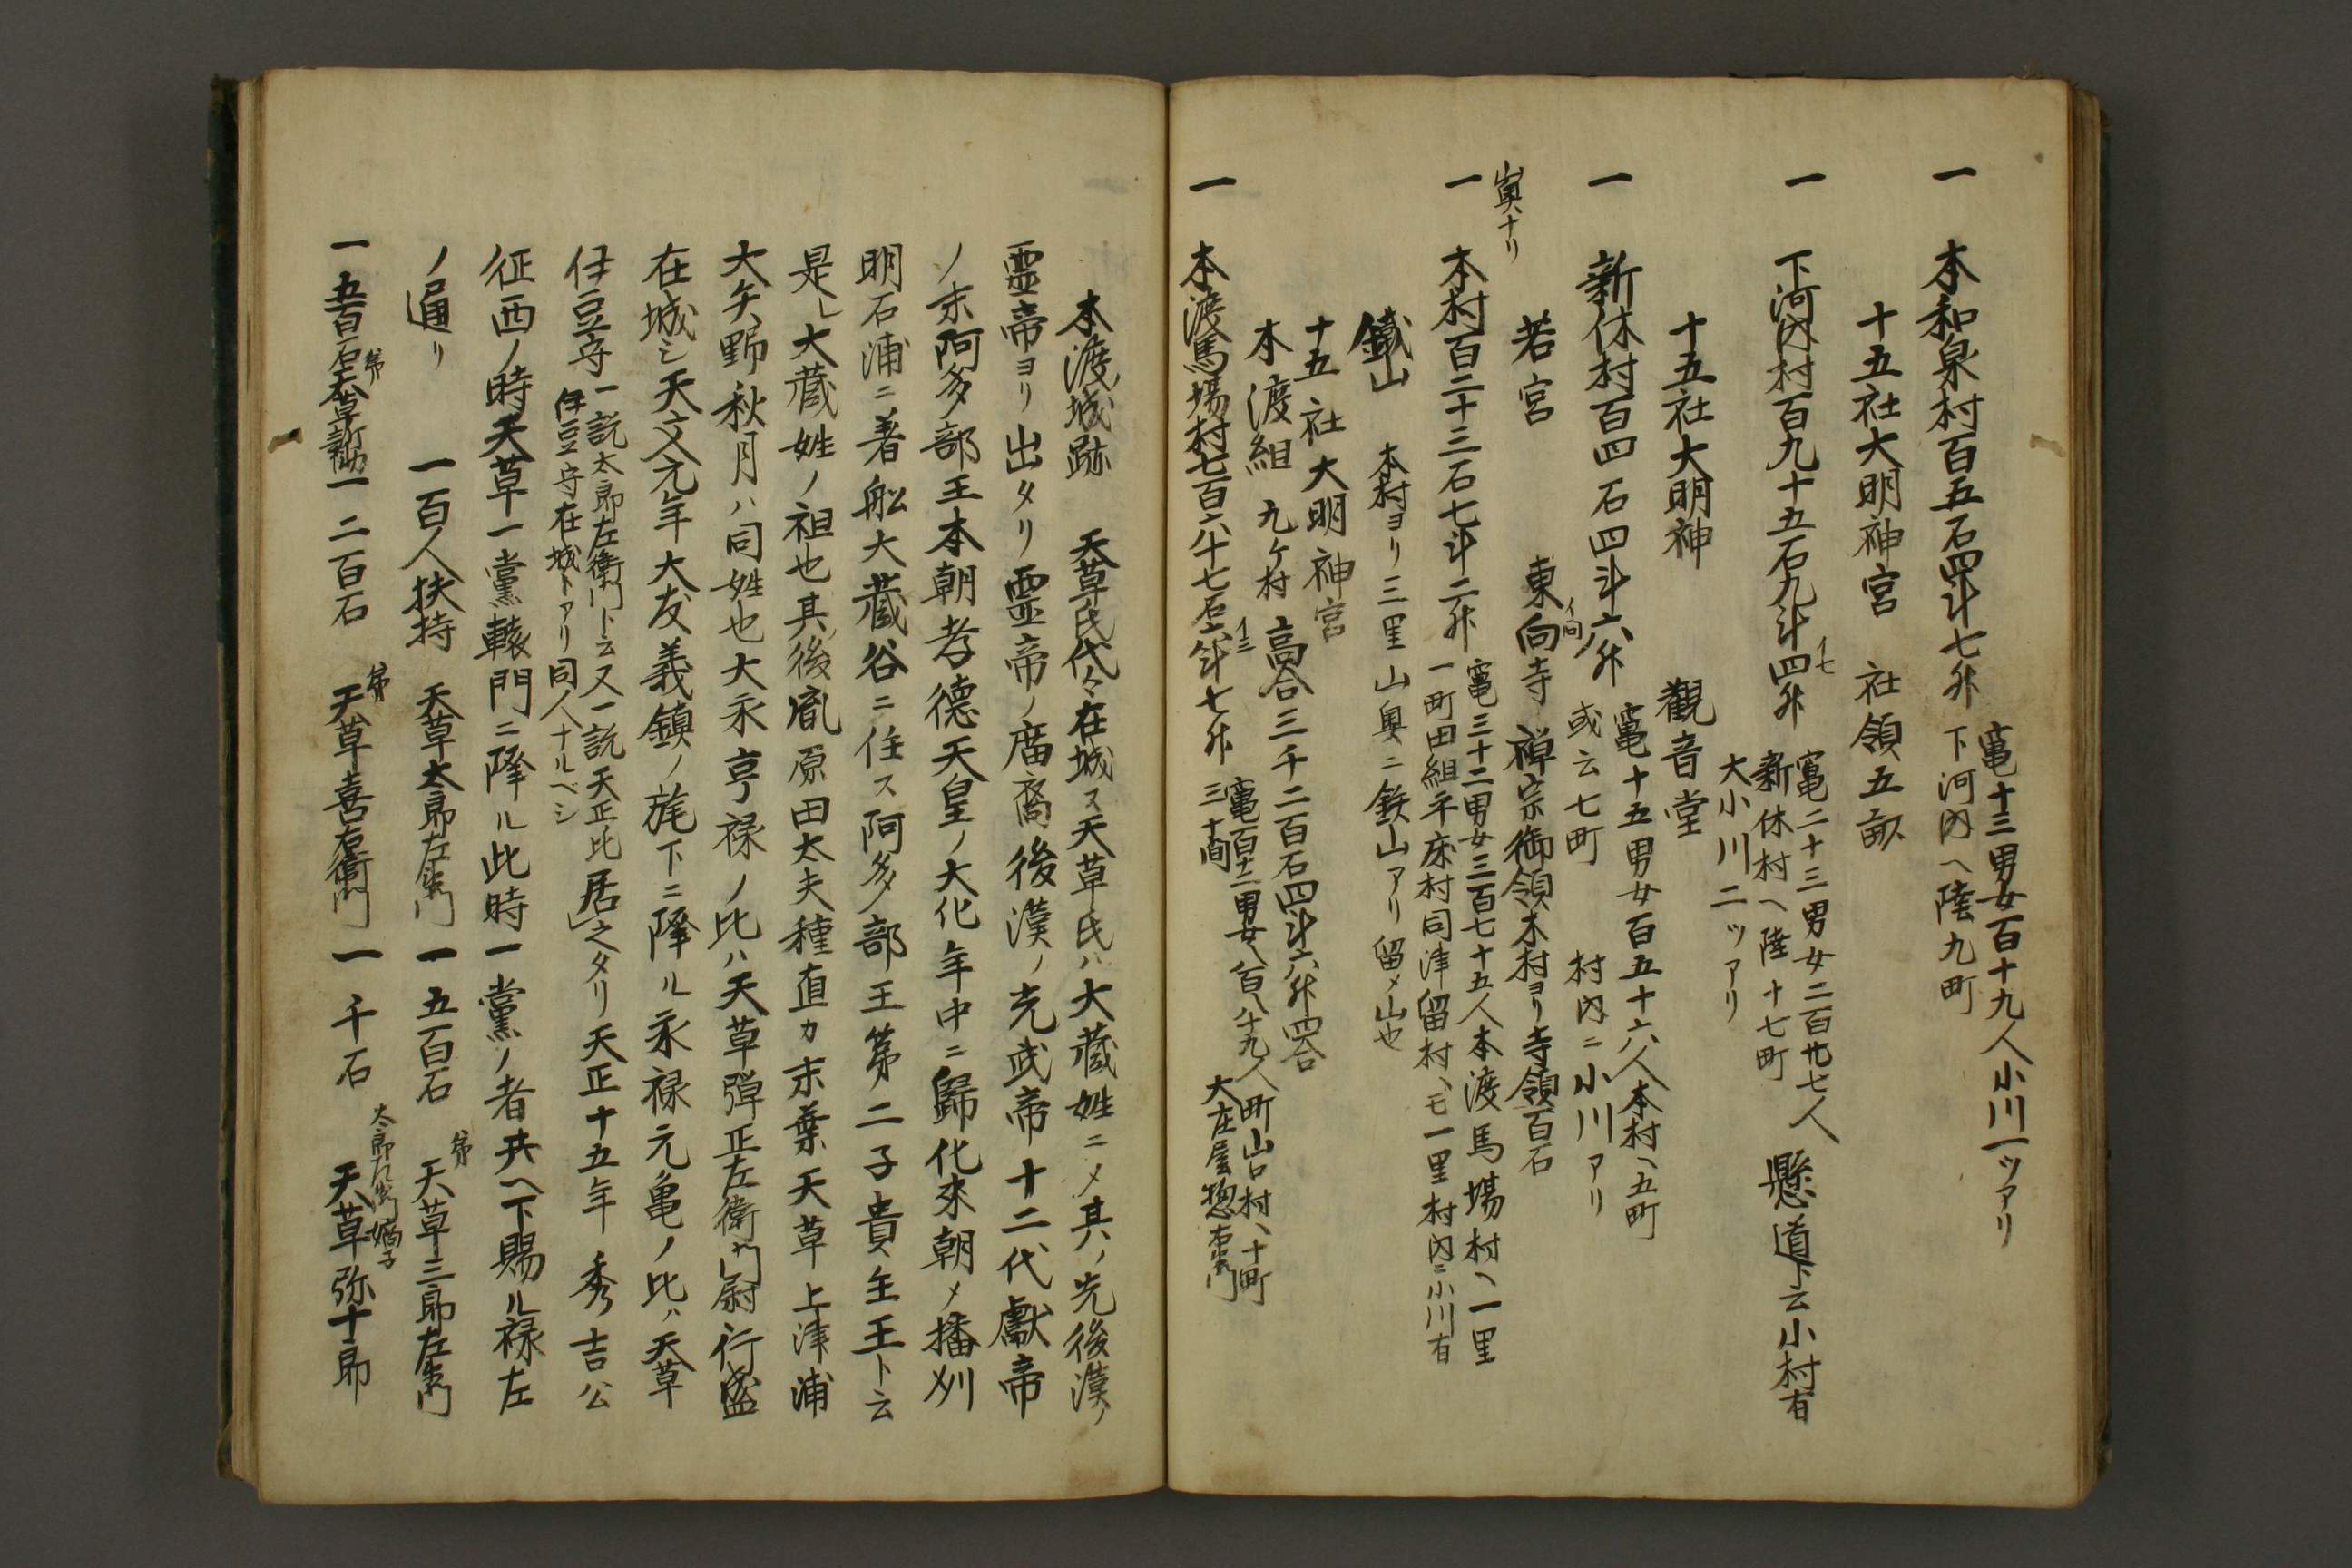 一 本和泉村百五石四斗七升
竈十三男女百十九人小川一ツアリ
下河内ヘ陸九町
十五社大明神宮 社領五畝
一 下河内村百九十五石九斗四升
イ七
竈二十三男女二百廿七人
新休村ヘ陸十七町
大小川二ツアリ
懸道ト云小村有
十五社大明神 観音堂
一 新休村百四石四斗六升
竈十五男女百五十六人本村ヘ五町
或云七町 村内ニ小川アリ
若宮 東向寺 禅宗御領本村ヨリ寺領百石
イ向
寅ナリ
一 本村百二十三石七斗二升
竈三十二男女三百七十五人本渡馬場村ヘ一里
一町田組平床村同津留村ヘモ一里村内ニ小川有
鐵山 本村ヨリ三里山奥ニ鉄山アリ留メ山也
十五社大明神宮
本渡組 九ケ村 高合三千二百石四斗六升四合
一 本渡馬場村七百六十七石六斗七升
イ三
竈百十二男女八百八十九人町山口村ヘ十町
三十間 大庄屋惣右衛門
本渡城跡 天草氏代々在城ス天草氏ハ大蔵姓ニメ其ノ先後漢ノ
霊帝ヨリ出タリ霊帝ノ廣裔後漢ノ光武帝十二代獻帝
ノ末阿多部王本朝孝徳天皇ノ大化年中ニ歸化來朝メ播刕
明石浦ニ著船大蔵谷ニ住ス阿多部王第二子貴主王ト云
是レ大蔵姓ノ祖也其後胤原田太夫種直カ末葉天草上津浦
大矢野秋月ハ同姓也大永亨禄ノ比ハ天草弾正左衛門尉行盛
在城シ天文元年大友義鎮ノ旄下ニ降ル永禄元亀ノ比ハ天草
伊豆守
一説太郎左衛門ト云又一説天正比
伊豆守在城トアリ同人ナルベシ
居之タリ天正十五年秀吉公
征西ノ時天草一黨轅門ニ降ル此時一黨ノ者共ヘ下賜ル禄左
ノ通リ 一百人扶持 天草太郎左衛門 一五百石 弟天草三郎左衛門
一五百石 弟天草新助 一二百石 弟天草喜右衛門 一千石 太郎左衛門嫡子天草弥十郎